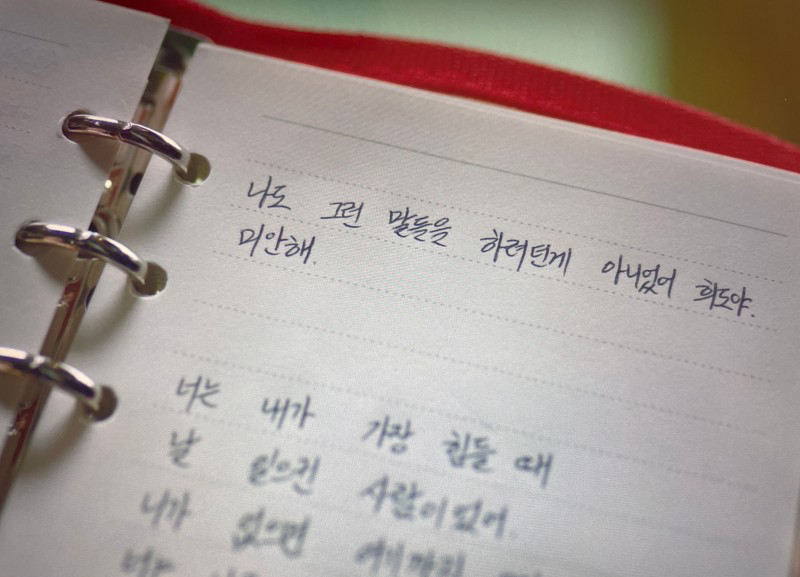 나도 그런 말들을 하려던게 아니었어 희도야.
미안해.
너는 내가 가장 힘들 때
날 일으킨 사람이었어.
니가 없으면 여기까지
너는